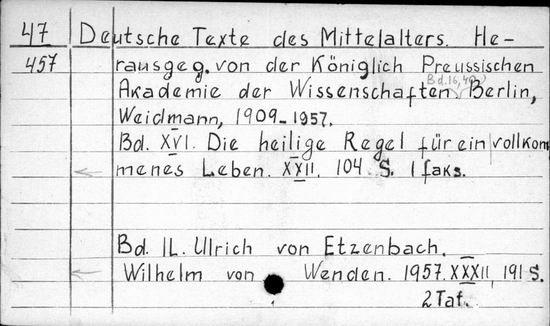 47 Deutsche Texte des Mittelalters. He-
457 rausgeg. von der Königlich Preussischen
Bd. 16, 49
Akademie der Wissenschaften Berlin,
Weidmann, 1909-1957.
Bd. XVI. Die heilige Regel für ein vollkom
menes Leben. XXII, 104 S. 1 faks.
Bd. IL. Ulrich von Etzenbach.
Wilhelm von Wenden. 1957. XXXII, 191 S.
2 Taf.